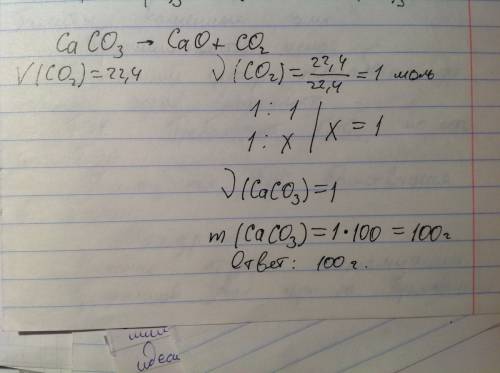 CaCO₃ → CaO + CO₂
V(CO₂) = 22,4
ν(CO₂) = 22,4/22,4 = 1 моль
1 : 1
1 : x | x = 1
ν(CaCO₃) = 1
m(CaCO₃) = 1·100 = 100г
Ответ: 100 г.
идеси